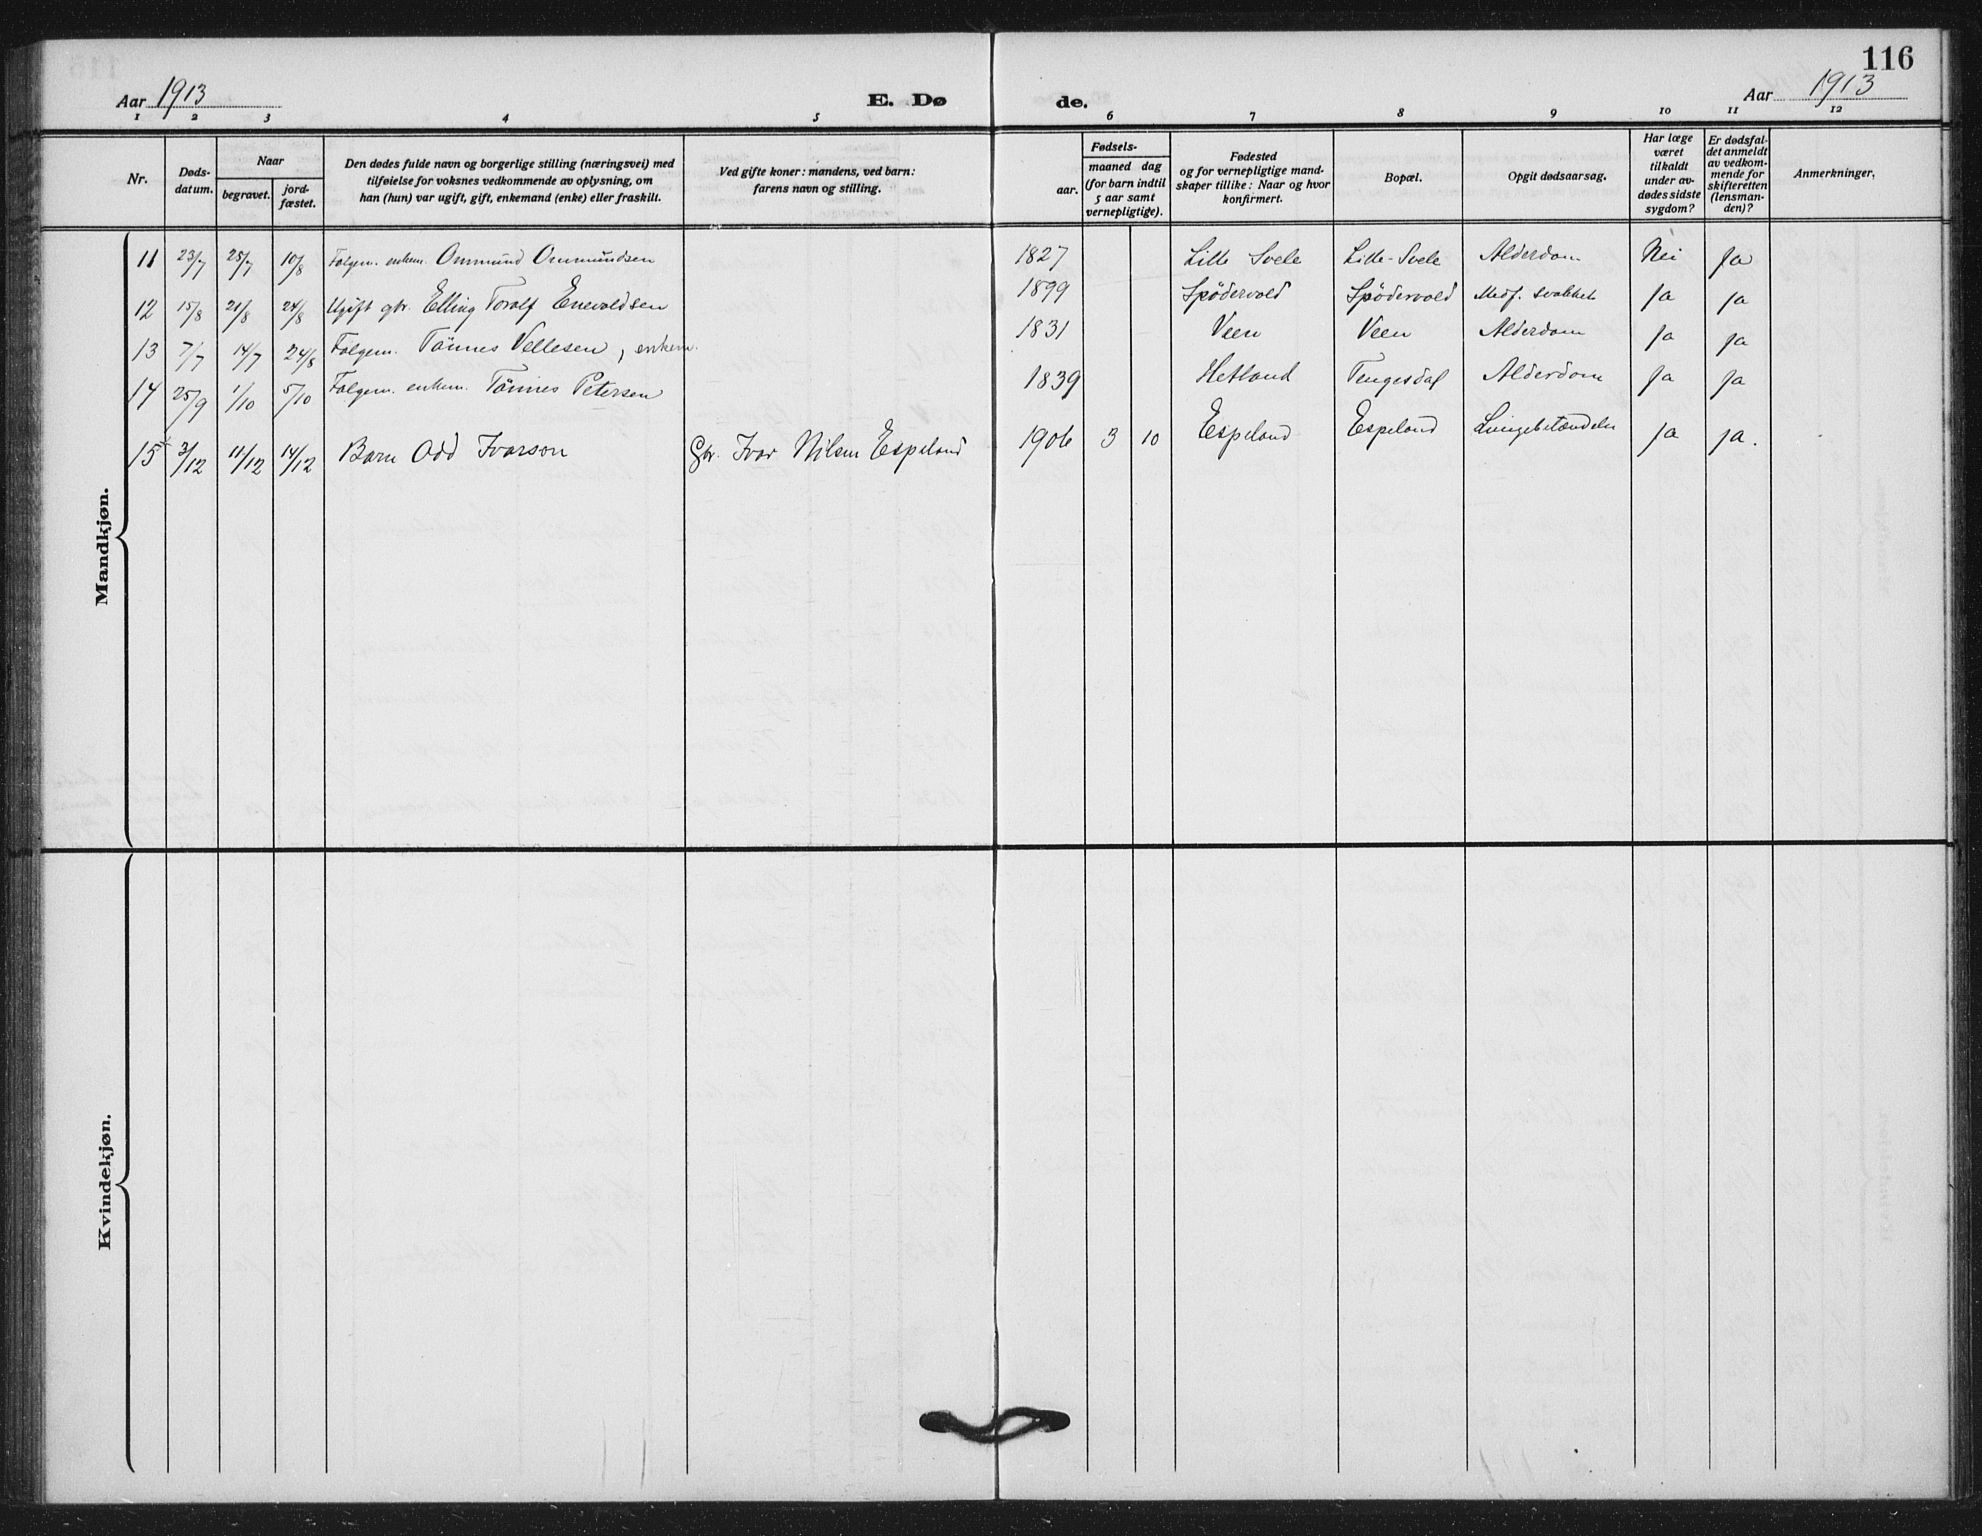 116
Aar 1913 E. Døde. Aar 1913
1 2 3 4 5 6 7 8 9 10 11 12
Nr.
Døds-
datum.
Naar
begravet.
jord-
fæstet.
Den dødes fulde navn og borgerlige stilling (næringsvei) med
tilføielse for voksnes vedkommende av oplysning, om
han (hun) var ugift, gift, enkemand (enke) eller fraskilt.
Ved gifte koner: mandens, ved barn:
farens navn og stilling.
Fødsels-
aar.
maaned dag
(for barn indtil
5 aar samt
vernepligtige).
Fødested
og for vernepligtige mand-
skaper tillike: Naar og hvor
konfirmert.
Bopæl.
Opgit dødsaarsag.
Har læge
været
tilkaldt
under av-
dødes sidste
sygdom?
Er dødsfal-
det anmeldt
av vedkom-
mende for
skifteretten
(lensman-
den)?
Anmerkninger,
Mandkjøn.
11 23/7 25/7 10/8 Følgem. enkem. Ommund Ommundsen 1827 Lille Svele Lille-Svele Alderdom Nei Ja
12 15/8 21/8 24/8 Ugift gbr. Elling Toralf Enevoldsen 1899 Spödervold Spödervold Medf. svakhet Ja Ja
13 7/7 14/7 24/8 Følgem. Tönnes Vellesen, enkem. 1831 Veen Veen Alderdom Ja Ja
14 25/9 1/10 5/10 Følgem. enkem. Tönnes Petersen 1839 Hetland Tengesdal Alderdom Ja Ja
15 3/12 11/12 14/12 Barn Odd Ivarson Gbr. Ivar Nilsen Espeland 1906 3 10 Espeland Espeland Lungebetændelse Ja Ja.
Kvindekjøn.